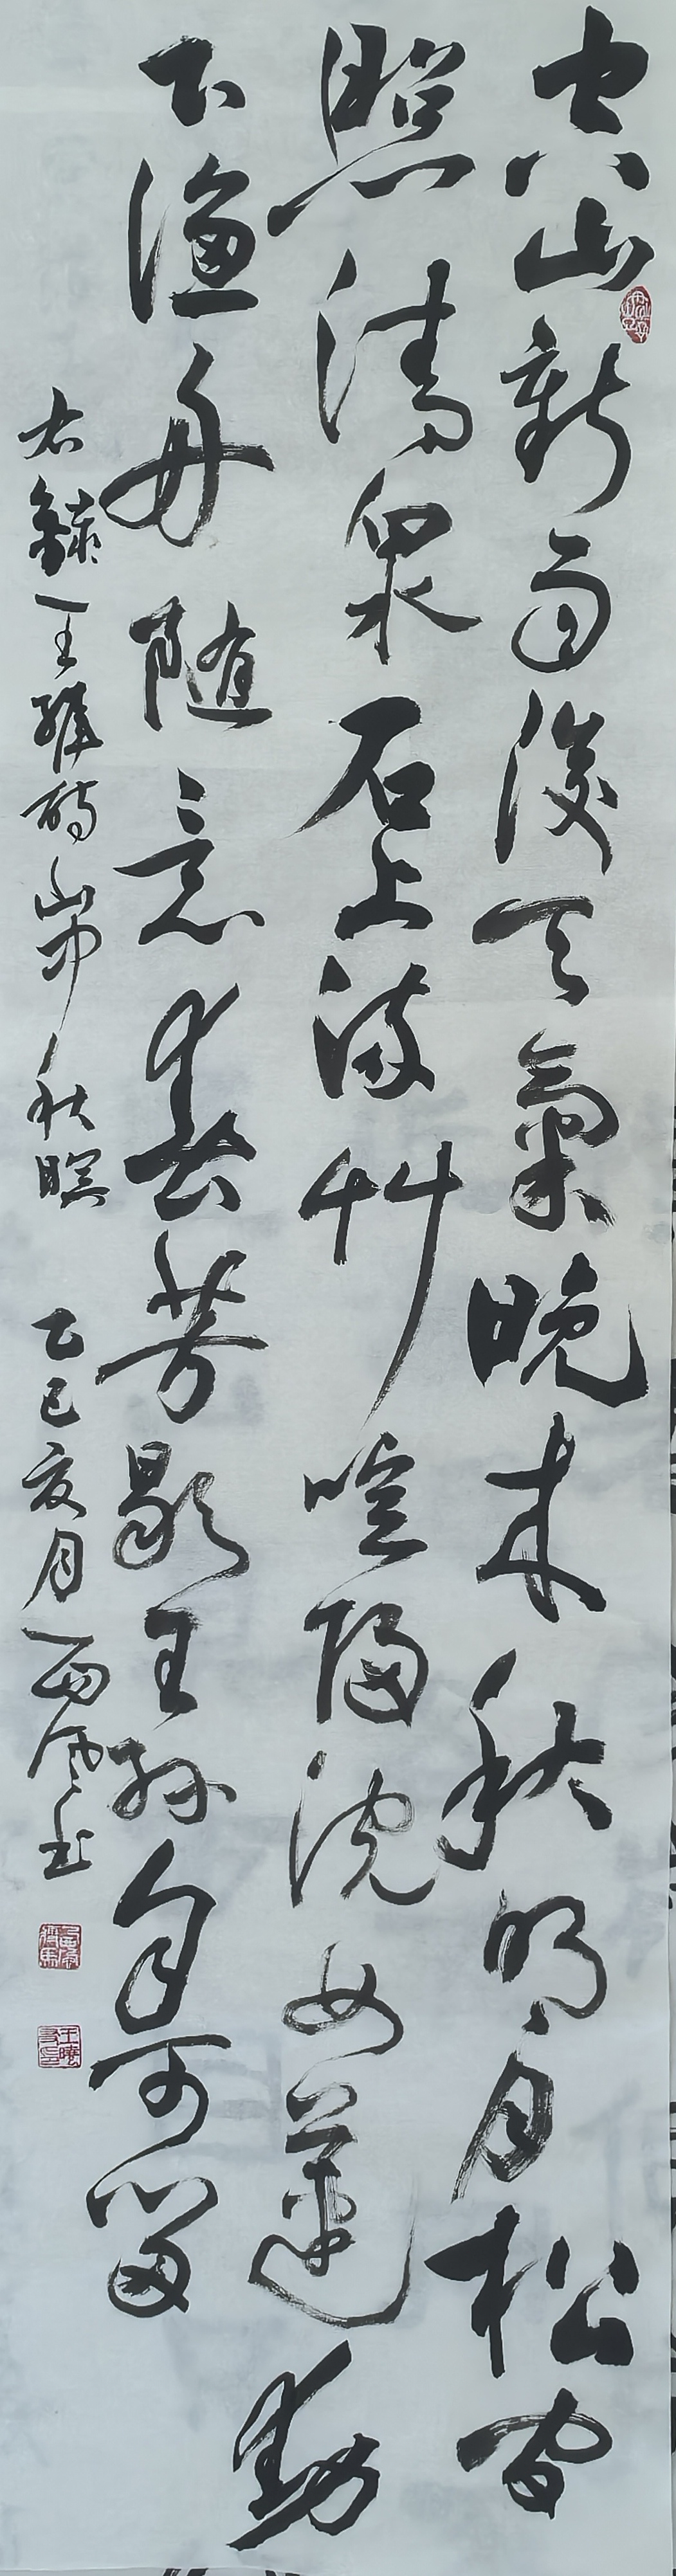 空山新雨後天氣晚来秋明月松間
照清泉石上流竹喧歸浣女蓮動
下漁舟随意春芳歇王孫自可留
右録王維詩山居秋暝 乙巳夏月雨風书